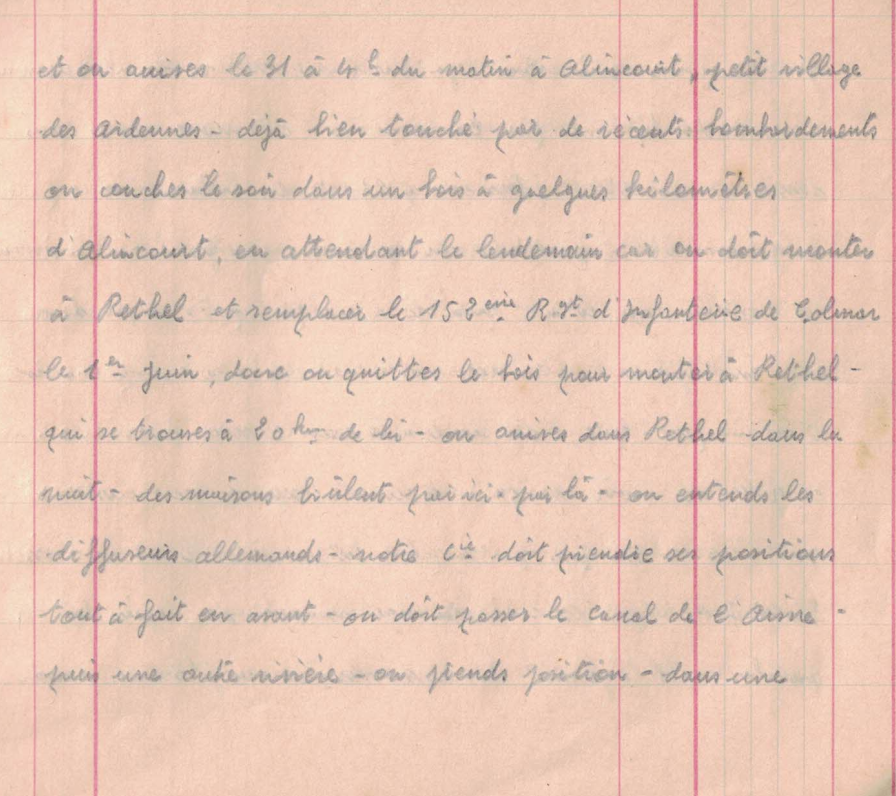 et on arrives le 31 à 4 h du matin à Alincourt, petit village
des Ardennes - déjà bien touché par de récents bombardements
on couches le soir dans un bois à quelques kilomètres
d'Alincourt, en attendant le lendemain car on doit monter
à Rethel et remplacer le 152 eme Rgt d'Infanterie de Colmar
le 1er Juin, donc on quittes le bois pour monter à Rethel -
qui se trouves à 20 km de là - on arrives dans Rethel dans la
nuit - des maisons brûlent par ici - par là - on entends les
diffuseurs allemands - notre Cie doit prendre ses positions
tout à fait en avant - on doit passer le canal de l'Aisne -
puis une autre rivière - on prends position - dans une